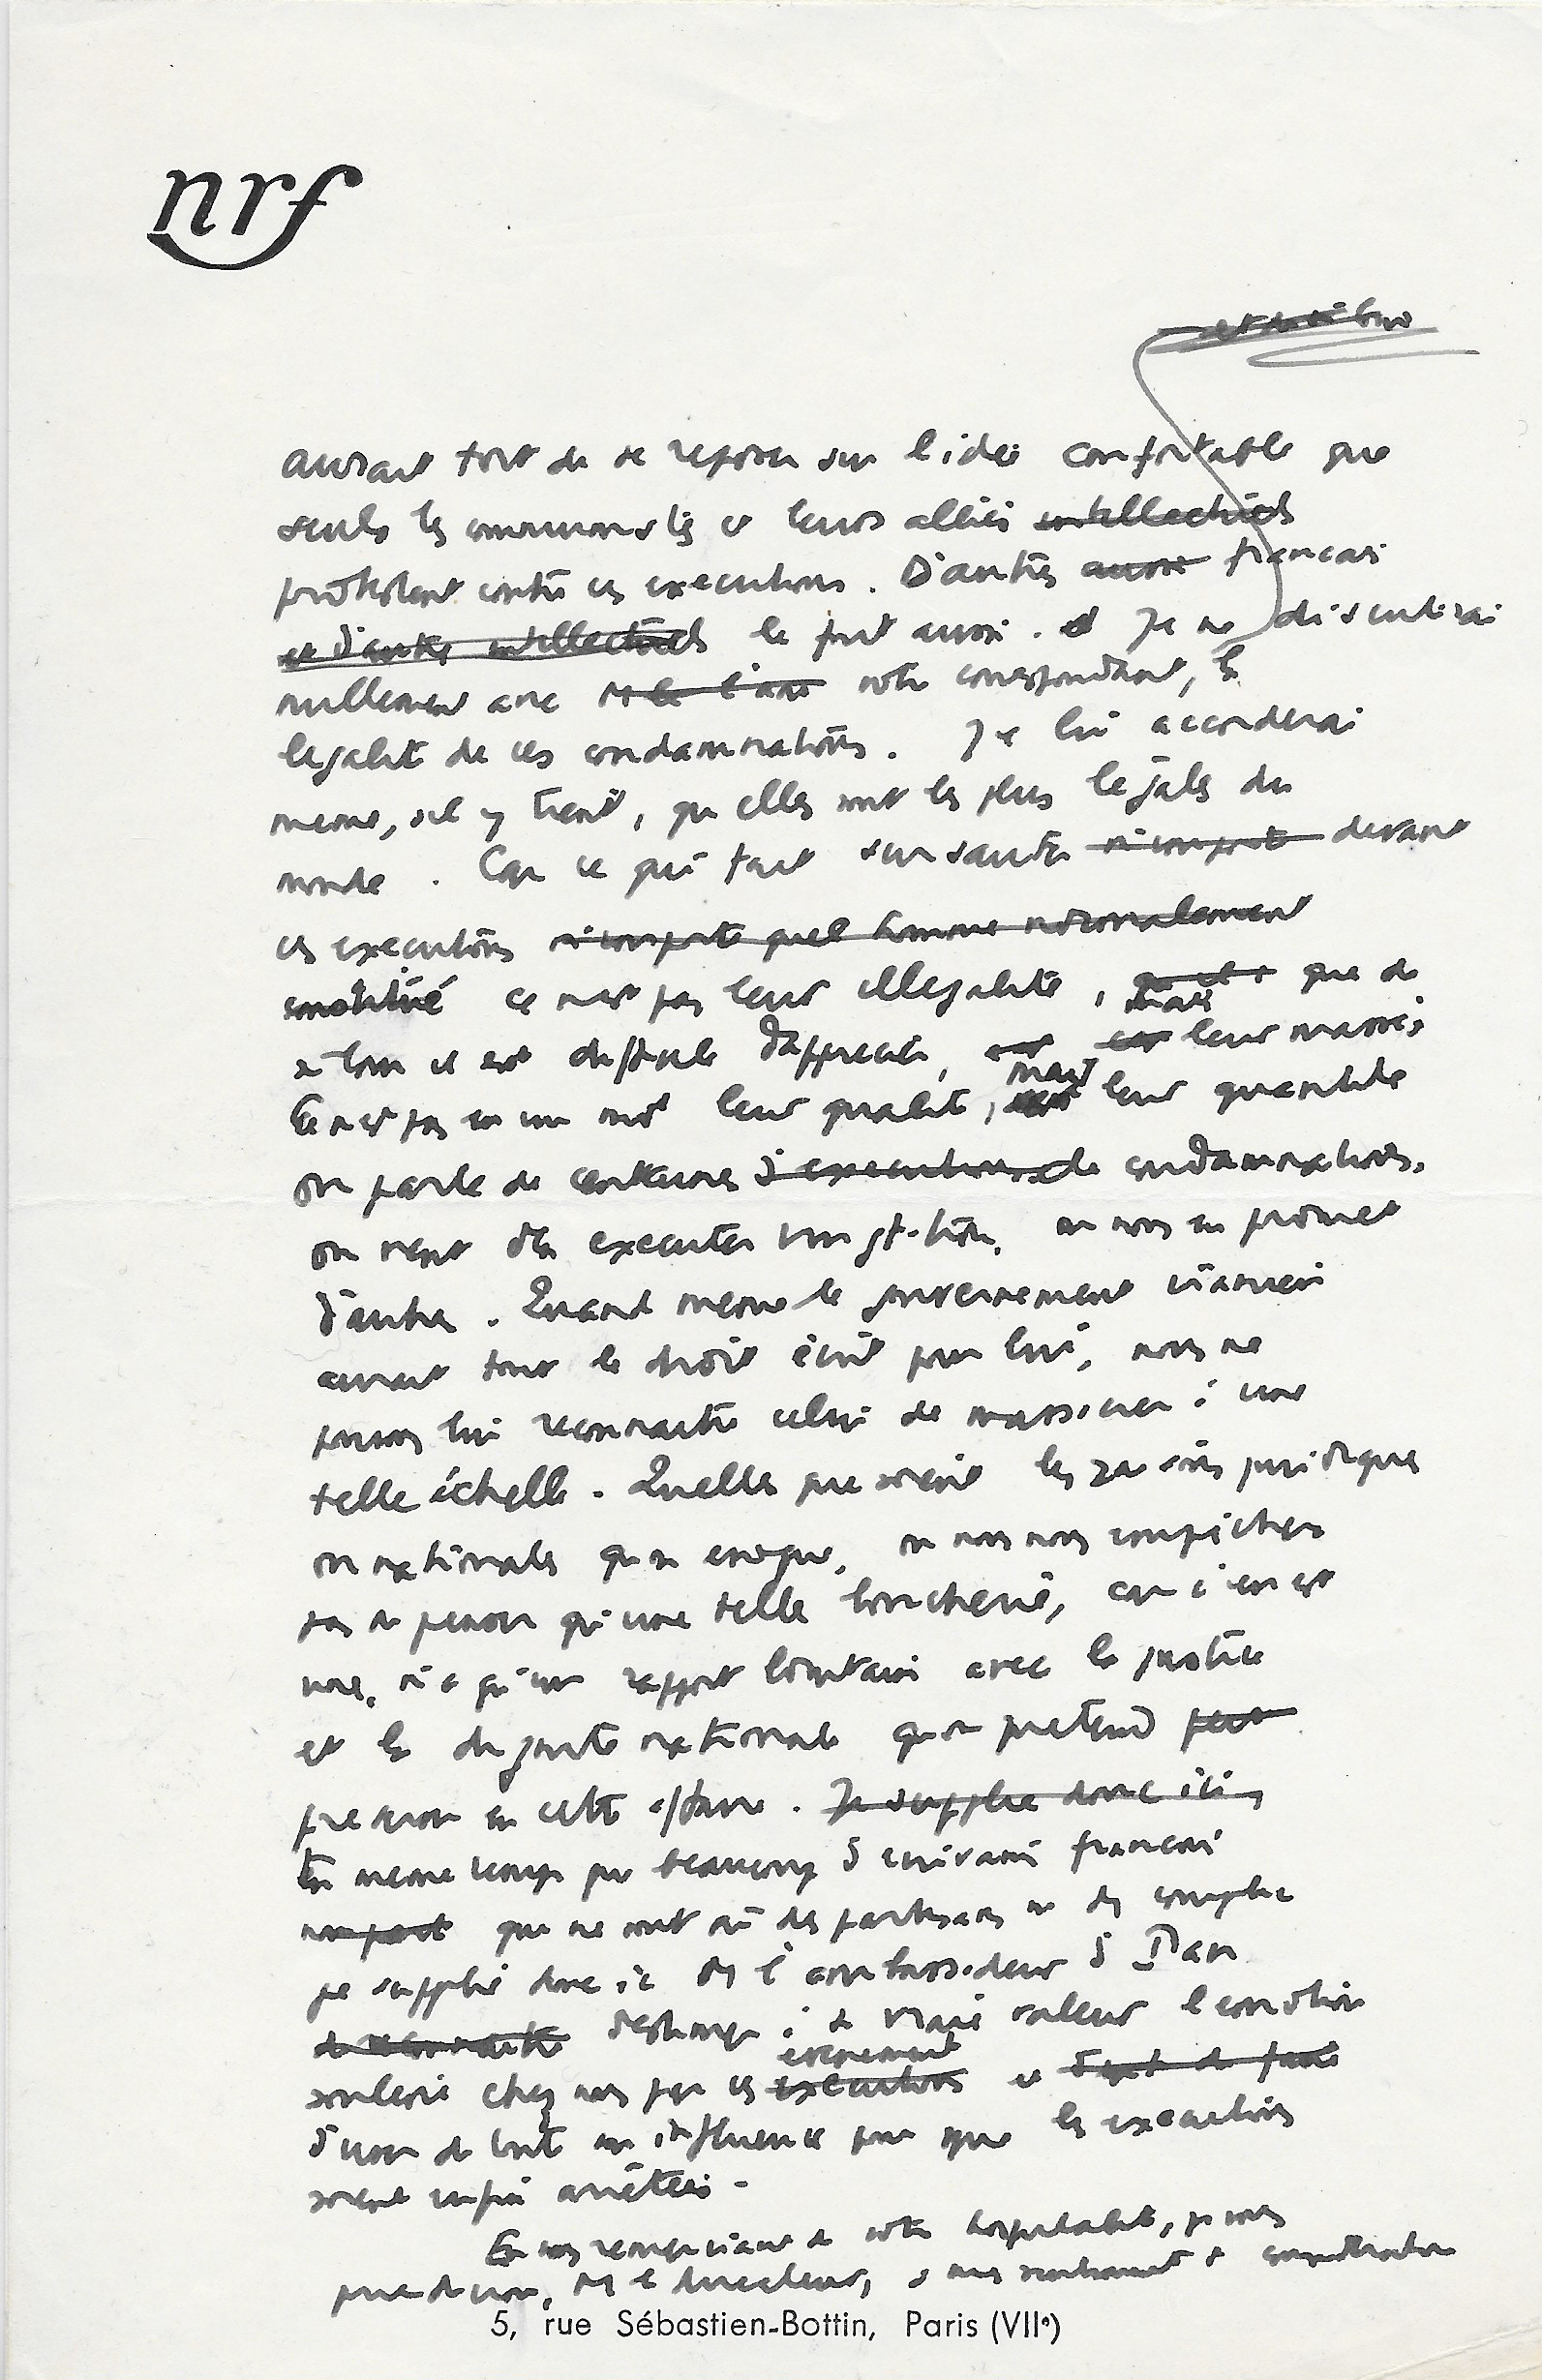 nrf
aurait tort de se reposer sur l'idée confortable que
seuls les communistes et leurs alliés intellectuels
protestent contre ces executions. D'autres aussi francais
et d'autres intellectuels le font aussi. et Je ne discuterai
nullement avec votre correspondant, la
legalité de ces condamnations. Je lui accorderai
meme, s'il y tient, qu'elles sont les plus legales du
monde. Car ce qui fait sursauter n'importe devant
ces executions n'importe quel homme normalement
constitué ce n'est pas leur illegalité, que de
si loin il est difficile d'apprecier, mais leur masse,
Ce n'est pas en un mot leur qualité, mais leur quantité
on parle de centaines d'executions de condamnations,
on vient d'en executer vingt-trois, on nous en promet
d'autres. Quand meme le gouvernement iranien
aurait tout le droit écrit pour lui, nous ne
pouvons lui reconnaitre celui de massacrer à une
telle échelle. Quelles que soient les raisons juridiques
ou nationales qu'on invoque, on ne nous empêchera
pas de penser qu'une telle boucherie, car c'en est
une, n'a qu'un rapport lointain avec la justice
et la dignité nationale qu'on pretend
preserver en cette affaire. Je supplie donc ici,
En meme temps que beaucoup d'ecrivains francais
qui ne sont ni des partisans ni des complices
je supplie donc ici M l'ambassadeur d'Iran
de reconnaitre d'estimer à sa vraie valeur l'emotion
soulevée chez nous par ces executions evenements et
d'user de toute son influence pour que les executions
soient enfin arrêtées.
En vous remerciant de votre hospitalité, je vous
prie de croire, M le directeur, à mes sentiments de consideration
5, rue Sébastien-Bottin, Paris (VIIe)